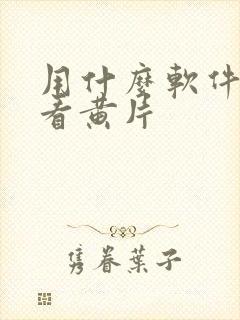 用什麼軟件
看黄片
隽眷葉子